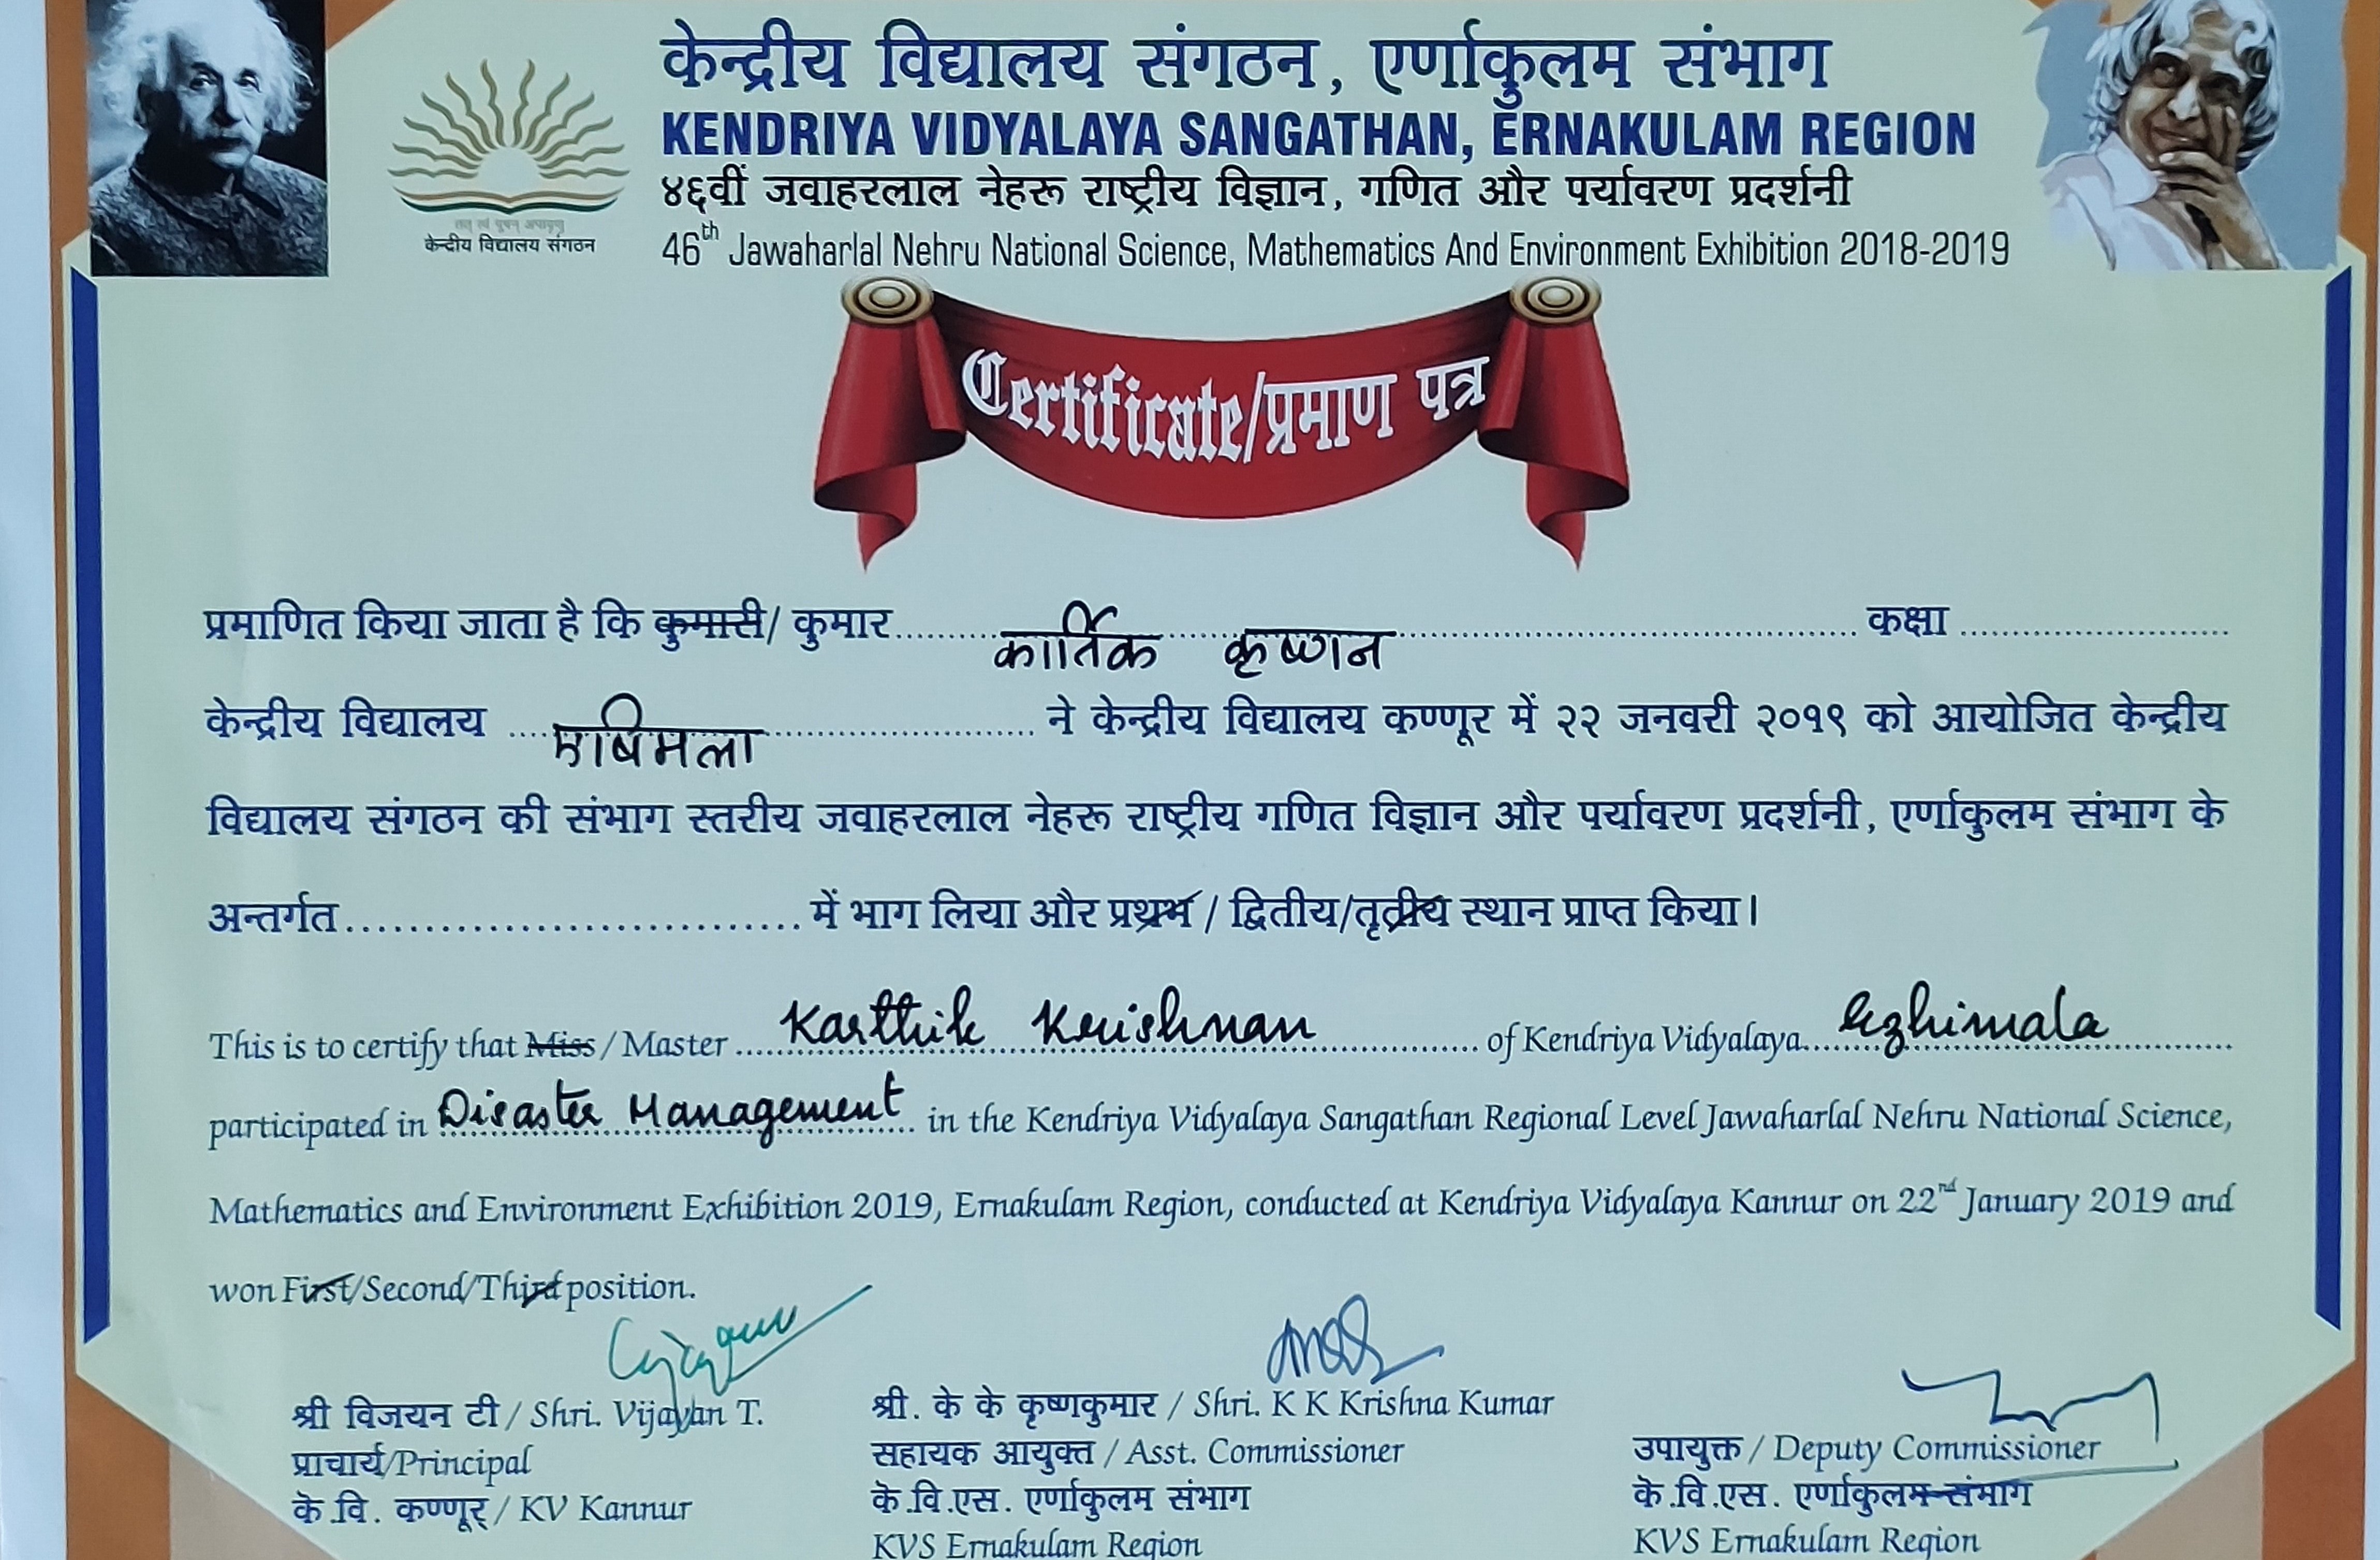 केन्द्रीय विद्यालय संगठन, एर्णाकुलम संभाग
KENDRIYA VIDYALAYA SANGATHAN, ERNAKULAM REGION
४६वीं जवाहरलाल नेहरू राष्ट्रीय विज्ञान, गणित और पर्यावरण प्रदर्शनी
46th Jawaharlal Nehru National Science, Mathematics And Environment Exhibition 2018-2019
तत् त्वं पूषन् अपावृणु
केन्द्रीय विद्यालय संगठन
Certificate/प्रमाण पत्र
प्रमाणित किया जाता है कि कुमारी/ कुमार कार्तिक कृष्णन कक्षा
केन्द्रीय विद्यालय एषिमला ने केन्द्रीय विद्यालय कण्णूर में २२ जनवरी २०१९ को आयोजित केन्द्रीय
विद्यालय संगठन की संभाग स्तरीय जवाहरलाल नेहरू राष्ट्रीय गणित विज्ञान और पर्यावरण प्रदर्शनी, एर्णाकुलम संभाग के
अन्तर्गत में भाग लिया और प्रथम / द्वितीय/तृतीय स्थान प्राप्त किया।
This is to certify that Miss / Master Karthik Krishnan of Kendriya Vidyalaya Ezhimala
participated in Disaster Management in the Kendriya Vidyalaya Sangathan Regional Level Jawaharlal Nehru National Science,
Mathematics and Environment Exhibition 2019, Ernakulam Region, conducted at Kendriya Vidyalaya Kannur on 22nd January 2019 and
won First/Second/Third position.
श्री विजयन टी / Shri. Vijayan T.
प्राचार्य/Principal
के.वि. कण्णूर् / KV Kannur
श्री. के के कृष्णकुमार / Shri. K K Krishna Kumar
सहायक आयुक्त / Asst. Commissioner
के.वि.एस. एर्णाकुलम संभाग
KVS Ernakulam Region
उपायुक्त / Deputy Commissioner
के.वि.एस. एर्णाकुलम संभाग
KVS Ernakulam Region